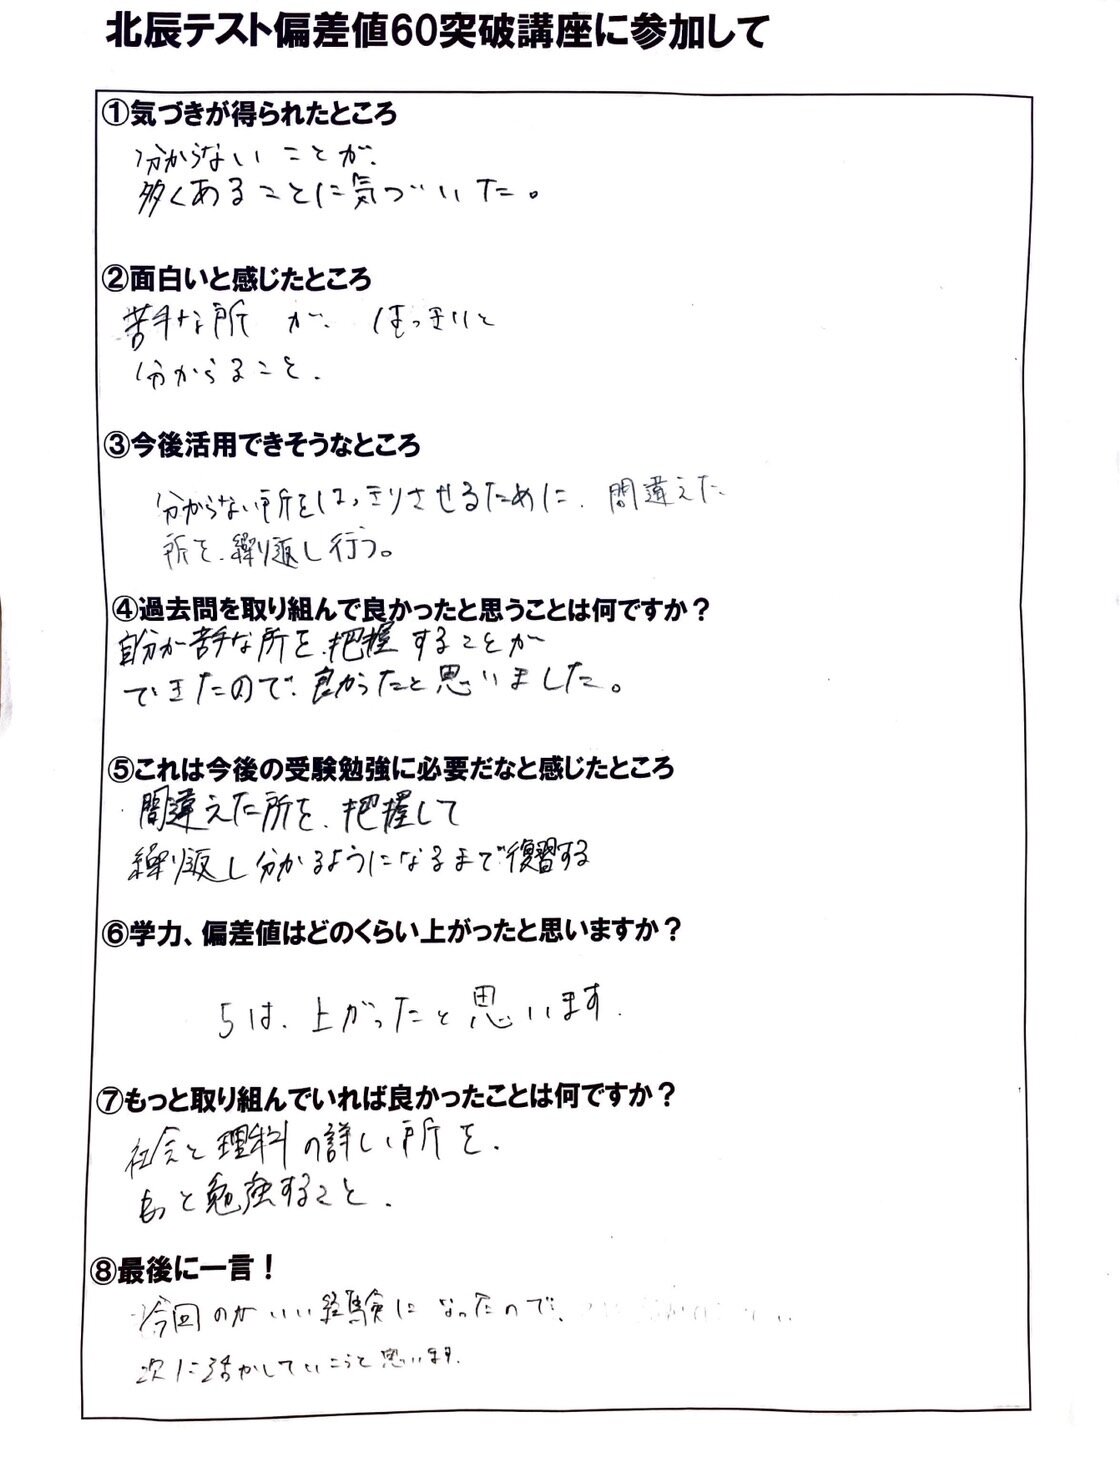 北辰テスト偏差値60突破講座に参加して
①気づきが得られたところ
分からないことが、
多くあることに気づいた。
②面白いと感じたところ
苦手な所が、はっきりと
分からること。
③今後活用できそうなところ
分からない所をはっきりさせるために、間違えた
所を、繰り返し行う。
④過去問を取り組んで良かったと思うことは何ですか？
自分が苦手な所を、把握することが
できたので、良かったと思いました。
⑤これは今後の受験勉強に必要だなと感じたところ
間違えた所を、把握して
繰り返し分かるようになるまで復習する
⑥学力、偏差値はどのくらい上がったと思いますか？
5は、上がったと思います。
⑦もっと取り組んでいれば良かったことは何ですか？
社会と理科の詳しい所を、
もっと勉強すること。
⑧最後に一言！
今回のがいい経験になったので、
次に活かしていこうと思います。